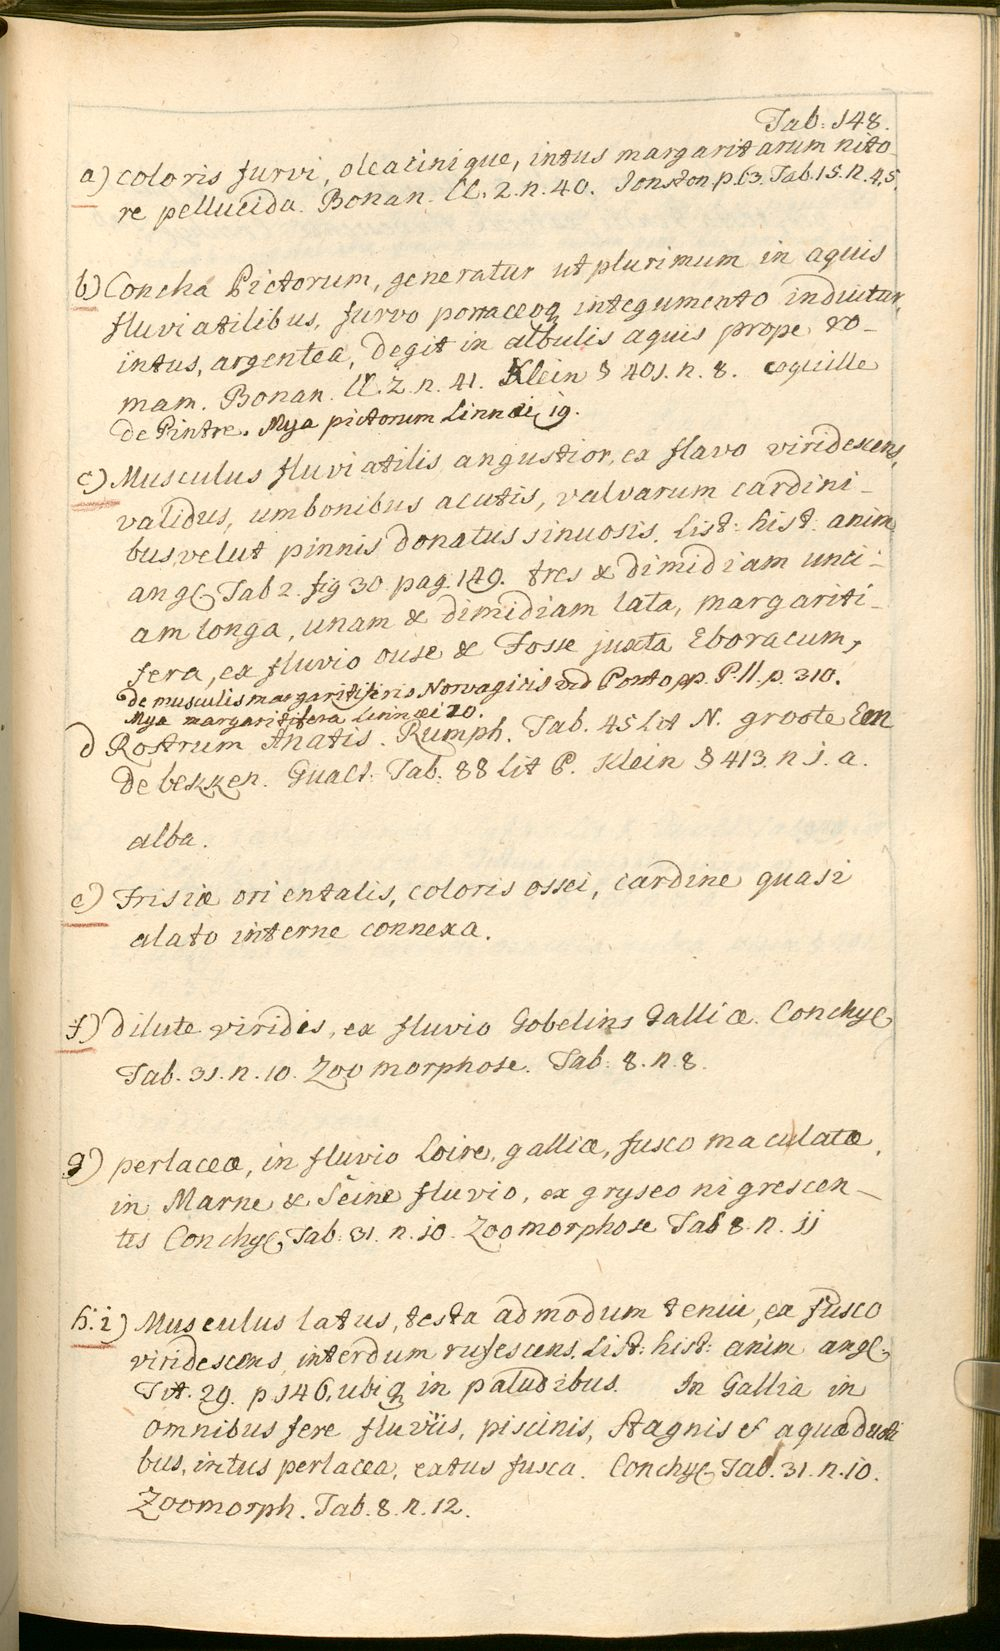 Tab: 148.
a) coloris furvi, oleatinique, intus margaritarum nito
re pellucida. Bonan. Cl. 2. n. 40. Jonston p. 63. Tab. 15. n. 4,5.
b) Concha Pictorum, generatur ut plurimum in aquis
fluviatilibus, furvo porraceoq integumento induitur,
intus, argentea, degit in albulis aquis prope ro-
mam. Bonan. Cl. 2. n. 41. Klein § 401. n. 8. coquille
de Pintre. Mya pictorum Linnæi 19.
c) Musculus fluviatilis angustior, ex flavo viridescens,
validus, umbonibus acutis, valvarum cardini-
bus, velut pinnis donatus sinuosis. List: hist: anim
angl. Tab 2. fig 30. pag. 149. tres & dimidiam unci-
am longa, unam & dimidiam lata, margariti-
fera, ex fluvio ouse & Fosse juxta Eboracum,
de musculis margaritiferis Norvagicis vid Pontopp. P. II. p. 310.
Mya margaritifera Linnæi 20.
d Rostrum Anatis. Rumph. Tab. 45 Lit N. groote Een
de bekken. Gualt: Tab: 88 Lit P. Klein § 413. n 1. a.
alba.
e) Frisiæ orientalis, coloris ossei, cardine quasi
alato interne connexa.
f) dilute virides, ex fluvio Gobelins Galliæ. Conchyl.
Tab. 31. n. 10. Zoomorphose. Tab: 8. n. 8.
g) perlaceæ, in fluvio Loire, galliæ, fusco maculatæ,
in Marne & Seine fluvio, ex gryseo nigrescen-
tes Conchyl. Tab: 31. n. 10. Zoomorphose Tab 8. n. 11
h. i) Musculus latus, testa admodum tenui, ex fusco
viridescens, interdum rufescens. List: hist: anim angl.
Tit. 29. p 146. ubiq in paludibus. In Gallia in
omnibus fere fluviis, piscinis, stagnis et aquæducti
bus, intus perlacea, extus fusca. Conchyl. Tab. 31. n. 10.
Zoomorph. Tab. 8. n. 12.